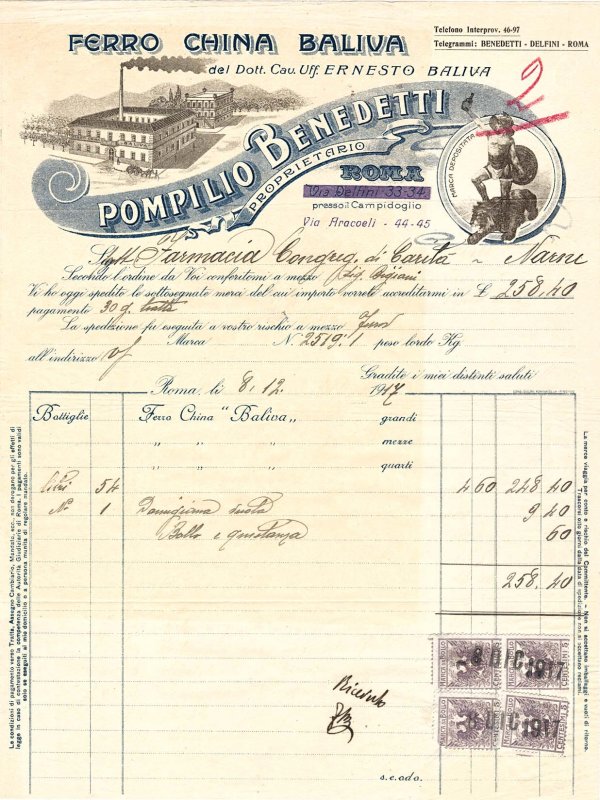 FERRO CHINA BALIVA
Telefono Interprov. 46-97
Telegrammi: BENEDETTI - DELFINI - ROMA
del Dott. Cav. Uff. ERNESTO BALIVA
2
POMPILIO BENEDETTI
PROPRIETARIO
ROMA
Via Delfini 33-34
presso il Campidoglio
Via Aracoeli - 44-45
MARCA DEPOSITATA
Spett. Farmacia Congreg. di Carità - Narni
Secondo l'ordine da Voi conferitomi a mezzo Sig.
Vi ho oggi spedito le sottosegnate merci del cui importo vorrete accreditarmi in £ 258.40
pagamento 30 g. tratta
La spedizione fu eseguita a vostro rischio a mezzo
Marca N. 2519.1 peso lordo Kg.
all'indirizzo
Gradite i miei distinti saluti
Roma, li 8.12. 1917
Bottiglie Ferro China "Baliva" grandi
" " " mezze
" " " quarti
litri 54 4 60 248.40
No 1 Damigiana vuota 9 40
Bollo e quietanza 60
258.40
MARCA DA BOLLO CENTESIMI 5
8 DIC 1917
8 DIC 1917
s. e. od o.
Le condizioni di pagamento verso Tratta, Assegno Cambiario, Mandato, ecc., non derogano per gli effetti di
legge in caso di contestazione la competenza delle Autorità Giudiziarie di Roma. I pagamenti sono validi
solo se eseguiti al mio domicilio o a persona munita di regolare mandato.
La merce viaggia per conto e rischio del Committente. - Non si accettano imballaggi e vuoti di ritorno.